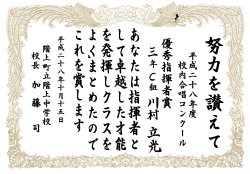 努力を讃えて
平成二十八年度
校内合唱コンクール
優秀指揮者賞
三年C組 川村 立光
あなたは指揮者と
して卓越した才能
を発揮しクラスを
よくまとめたので
これを賞します
平成二十八年十月十五日
階上町立階上中学校
校長 加藤 司